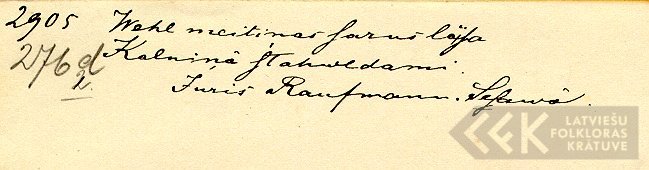 2905 Wehl meitinas sarus lasa
276 d/2 Kalniņâ stahwedami.
Juris Kaufmann. Seswê.
LATVIEŠU
FOLKLORAS
KRĀTUVE